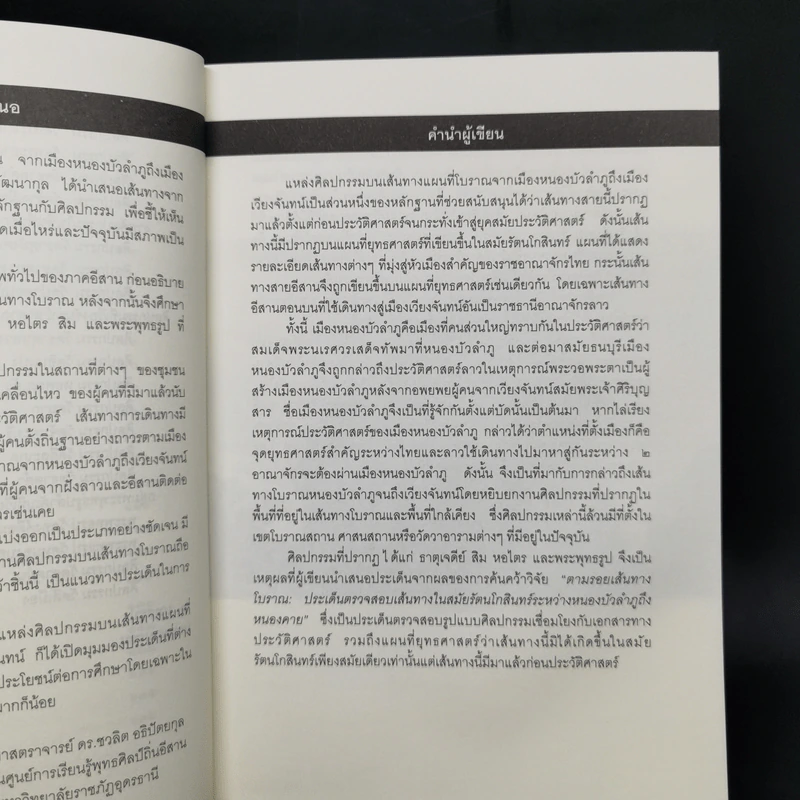 นอ
น จากเมืองหนองบัวลำภูถึงเมือง
วัฒนากุล ได้นำเสนอเส้นทางจาก
ลักฐานกับศิลปกรรม เพื่อชี้ให้เห็น
ดเมื่อไหร่และปัจจุบันมีสภาพเป็น
พทั่วไปของภาคอีสาน ก่อนอธิบาย
นทางโบราณ หลังจากนั้นจึงศึกษา
หอไตร สิม และพระพุทธรูป ที่
ปกรรมในสถานที่ต่างๆ ของชุมชน
คลื่อนไหว ของผู้คนที่มีมาแล้วนับ
วัติศาสตร์ เส้นทางการเดินทางมี
ผู้คนตั้งถิ่นฐานอย่างถาวรตามเมือง
ราณจากหนองบัวลำภูถึงเวียงจันทน์
ที่ผู้คนจากฝั่งลาวและอีสานติดต่อ
ารเช่นเคย
แบ่งออกเป็นประเภทอย่างชัดเจน มี
านศิลปกรรมบนเส้นทางโบราณถือ
ว้าชิ้นนี้ เป็นแนวทางประเด็นในการ
แหล่งศิลปกรรมบนเส้นทางแผนที่
นทน์ ก็ได้เปิดมุมมองประเด็นที่ต่าง
ประโยชน์ต่อการศึกษาโดยเฉพาะใน
มากก็น้อย
าสตราจารย์ ดร.ชวลิต อธิปัตยกุล
นศูนย์การเรียนรู้พุทธศิลป์ถิ่นอีสาน
าวิทยาลัยราชภัฏอุดรธานี
คำนำผู้เขียน
แหล่งศิลปกรรมบนเส้นทางแผนที่โบราณจากเมืองหนองบัวลำภูถึงเมือง
เวียงจันทน์เป็นส่วนหนึ่งของหลักฐานที่ช่วยสนับสนุนได้ว่าเส้นทางสายนี้ปรากฏ
มาแล้วตั้งแต่ก่อนประวัติศาสตร์จนกระทั่งเข้าสู่ยุคสมัยประวัติศาสตร์ ดังนั้นเส้น
ทางนี้มีปรากฏบนแผนที่ยุทธศาสตร์ที่เขียนขึ้นในสมัยรัตนโกสินทร์ แผนที่ได้แสดง
รายละเอียดเส้นทางต่างๆ ที่มุ่งสู่หัวเมืองสำคัญของราชอาณาจักรไทย กระนั้นเส้น
ทางสายอีสานจึงถูกเขียนขึ้นบนแผนที่ยุทธศาสตร์เช่นเดียวกัน โดยเฉพาะเส้นทาง
อีสานตอนบนที่ใช้เดินทางสู่เมืองเวียงจันทน์อันเป็นราชธานีอาณาจักรลาว
ทั้งนี้ เมืองหนองบัวลำภูคือเมืองที่คนส่วนใหญ่ทราบกันในประวัติศาสตร์ว่า
สมเด็จพระนเรศวรเสด็จทัพมาที่หนองบัวลำภู และต่อมาสมัยธนบุรีเมือง
หนองบัวลำภูจึงถูกกล่าวถึงประวัติศาสตร์ลาวในเหตุการณ์พระวอพระตาเป็นผู้
สร้างเมืองหนองบัวลำภูหลังจากอพยพผู้คนจากเวียงจันทน์สมัยพระเจ้าศิริบุญ
สาร ชื่อเมืองหนองบัวลำภูจึงเป็นที่รู้จักกันตั้งแต่บัดนั้นเป็นต้นมา หากไล่เรียง
เหตุการณ์ประวัติศาสตร์ของเมืองหนองบัวลำภู กล่าวได้ว่าตำแหน่งที่ตั้งเมืองก็คือ
จุดยุทธศาสตร์สำคัญระหว่างไทยและลาวใช้เดินทางไปมาหาสู่กันระหว่าง ๒
อาณาจักรจะต้องผ่านเมืองหนองบัวลำภู ดังนั้น จึงเป็นที่มากับการกล่าวถึงเส้น
ทางโบราณหนองบัวลำภูจนถึงเวียงจันทน์โดยหยิบยกงานศิลปกรรมที่ปรากฏใน
พื้นที่ที่อยู่ในเส้นทางโบราณและพื้นที่ใกล้เคียง ซึ่งศิลปกรรมเหล่านี้ล้วนมีที่ตั้งใน
เขตโบราณสถาน ศาสนสถานหรือวัดวาอารามต่างๆ ที่มีอยู่ในปัจจุบัน
ศิลปกรรมที่ปรากฏ ได้แก่ ธาตุเจดีย์ สิม หอไตร และพระพุทธรูป จึงเป็น
เหตุผลที่ผู้เขียนนำเสนอประเด็นจากผลของการค้นคว้าวิจัย “ตามรอยเส้นทาง
โบราณ: ประเด็นตรวจสอบเส้นทางในสมัยรัตนโกสินทร์ระหว่างหนองบัวลำภูถึง
หนองคาย” ซึ่งเป็นประเด็นตรวจสอบรูปแบบศิลปกรรมเชื่อมโยงกับเอกสารทาง
ประวัติศาสตร์ รวมถึงแผนที่ยุทธศาสตร์ว่าเส้นทางนี้มิได้เกิดขึ้นในสมัย
รัตนโกสินทร์เพียงสมัยเดียวเท่านั้นแต่เส้นทางนี้มีมาแล้วก่อนประวัติศาสตร์